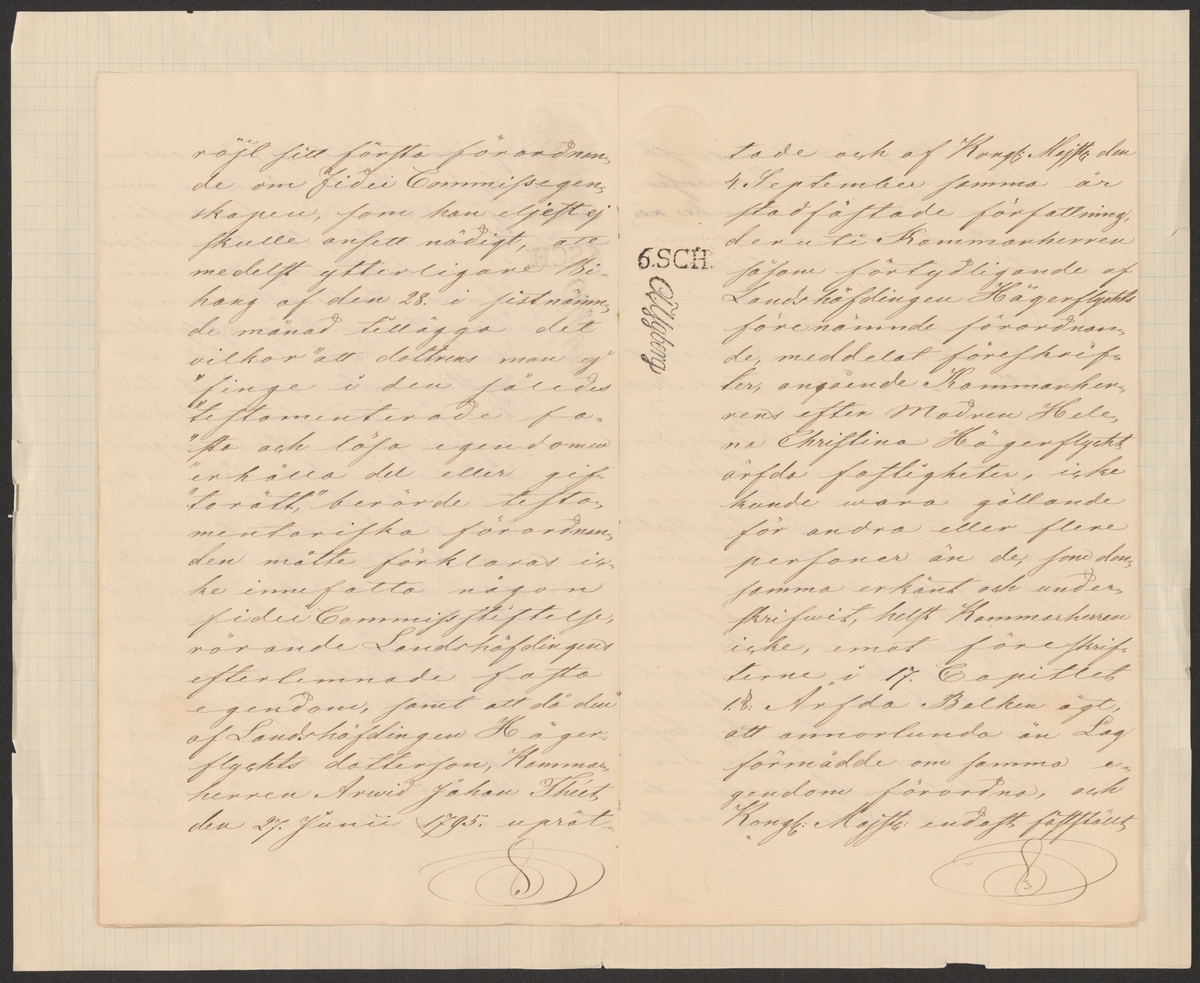 röjt sitt första förordnan-
de om fidei Commissegen-
skapen, som han eljest ej
skulle ansett nödigt, att
medelst ytterligare bi-
hang af den 28. i sistnämn-
de månad tillägga det
vilkor "att dottrens man ej
"finge i den således
"testamenterade fa-
"sta och lösa egendomen
"erhålla del eller gif-
"torätt," berörde testa-
mentariska förordnan-
den måtte förklaras ic-
ke innefatta någon
fidei Commissstiftelse,
rörande Landshöfdingens
efterlemnade fasta
egendom, samt att då den
af Landshöfdingen Häger-
flychts dotterson, Kammar-
herren Arwid Johan Théet
den 27. Junii 1795. uprät-
tade och af Kongl: Majst: den
4. September samma år
stadfästade författning,
deruti Kammarherren
såsom förtydligande af
Landshöfdingen Hägerflychts
förenämnde förordnan-
de, meddelat föreskrif-
ter, angående Kammarher-
rens efter Modren Hele-
na Christina Hägerflycht
ärfda fastigheter, icke
kunde wara gällande
för andra eller flere
personer än de, som den-
samma erkänt och under-
skrifwit, helst Kammarherren
icke, emot föreskrif-
terne i 17. Capitlet
1.§: Ärfda Balken ägt,
att annorlunda än Lag
förmådde om samma e-
gendom förordna, och
Kongl: Majst: endast fastställt
6.SCH.